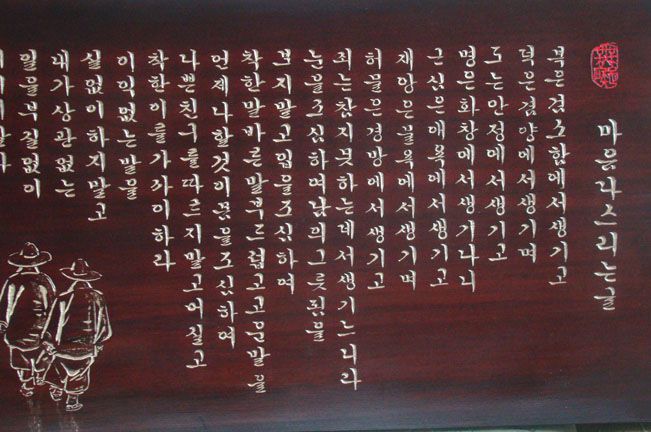 마음다스리는글
복은검소함에서생기고
덕은겸양에서생기며
도는안정에서생기고
명은화창에서생기나니
근심은애욕에서생기고
재앙은물욕에서생기며
허물은경망에서생기고
죄는참지못하는데서생기느니라
눈을조심하여남의그릇됨을
보지말고입을조심하여
착한말바른말부드럽고고운말을
언제나할것이몸을조심하여
나쁜친구를따르지말고어질고
착한이를가까이하라
이익없는말을
실없이하지말고
내가상관없는
일을부질없이